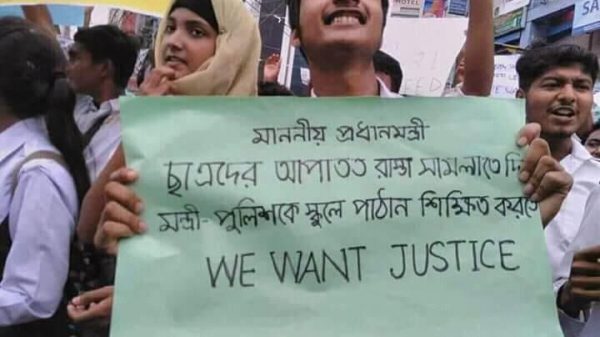 HOTEL
SA
মাননীয় প্রধানমন্ত্রী
ছাত্রদের আপাতত রাস্তা সামলাতে দি
মন্ত্রী-পুলিশকে স্কুলে পাঠান শিক্ষিত করতে
WE WANT JUSTICE